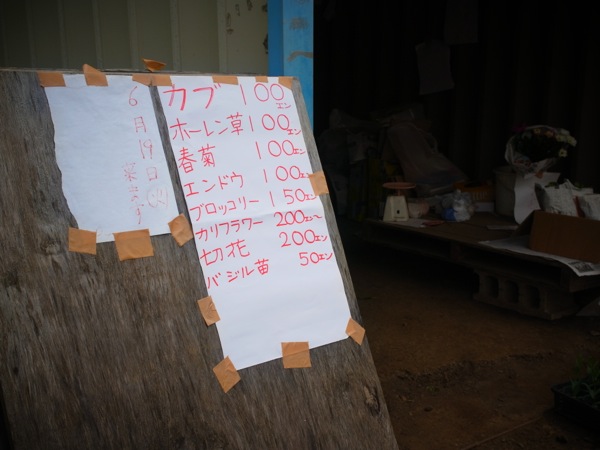 カブ 100エン
ホーレン草 100エン
春菊 100エン
エンドウ 100エン
ブロッコリー 150エン
カリフラワー 200エン〜
切花 200エン
バジル苗 50エン
6月19日